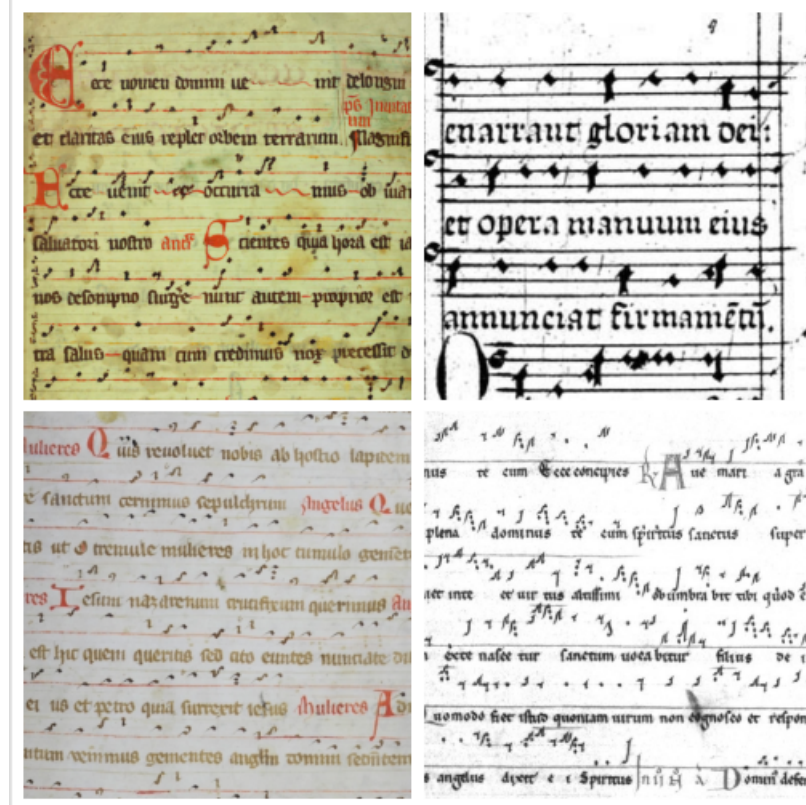 Ecce nomen domini ve nit delongin
ps Invitat
et claritas eius replet orbem terrarum Magnifi
Ecce uenit ex occurra mus ob uiam
saluatori nostro Scientes quia hora est ia
nos desompno surge nunc autem propior est
tra salus quam cum credimus nox precessit d
enarrant gloriam dei:
et opera manuum eius
annunciat firmamētū.
Mulieres Quis reuoluet nobis ab hostio lapitem
sanctum cernimus sepulchrum Angelus Quē
ut O tremule mulieres in hoc tumulo gement
res Iesum nazarenum crucifixum querimus An
est hic quem queritis sed cito euntes nunciate di
ei us et petro quia surrexit iesus Mulieres Ad
ntum venimus gementes anglm domini sedentem
nus te cum Ecce concipies Aue mari a gra
plena dominus te cum spiritus sanctus super
et uir tus altissimi obumbra bit tibi quod
ecce nasce tur sanctum uoca bitur filius de i
uomodo fiet istud quoniam uirum non cognosco et respon
s angelus dixit e i Spiritus Domin